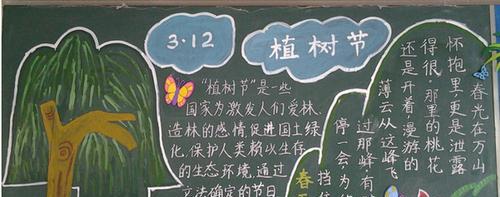 3·12
植树节
“植树节”是一些
国家为激发人们爱林、
造林的感情促进国土绿
化,保护人类赖以生存
的生态环境,通过
立法确定的节日
春光在万山
怀抱里,更是泄露
得很,那里的桃花
还是开着,漫游的
薄云从这峰飞
过那峰,有
停一会,为
挡
春